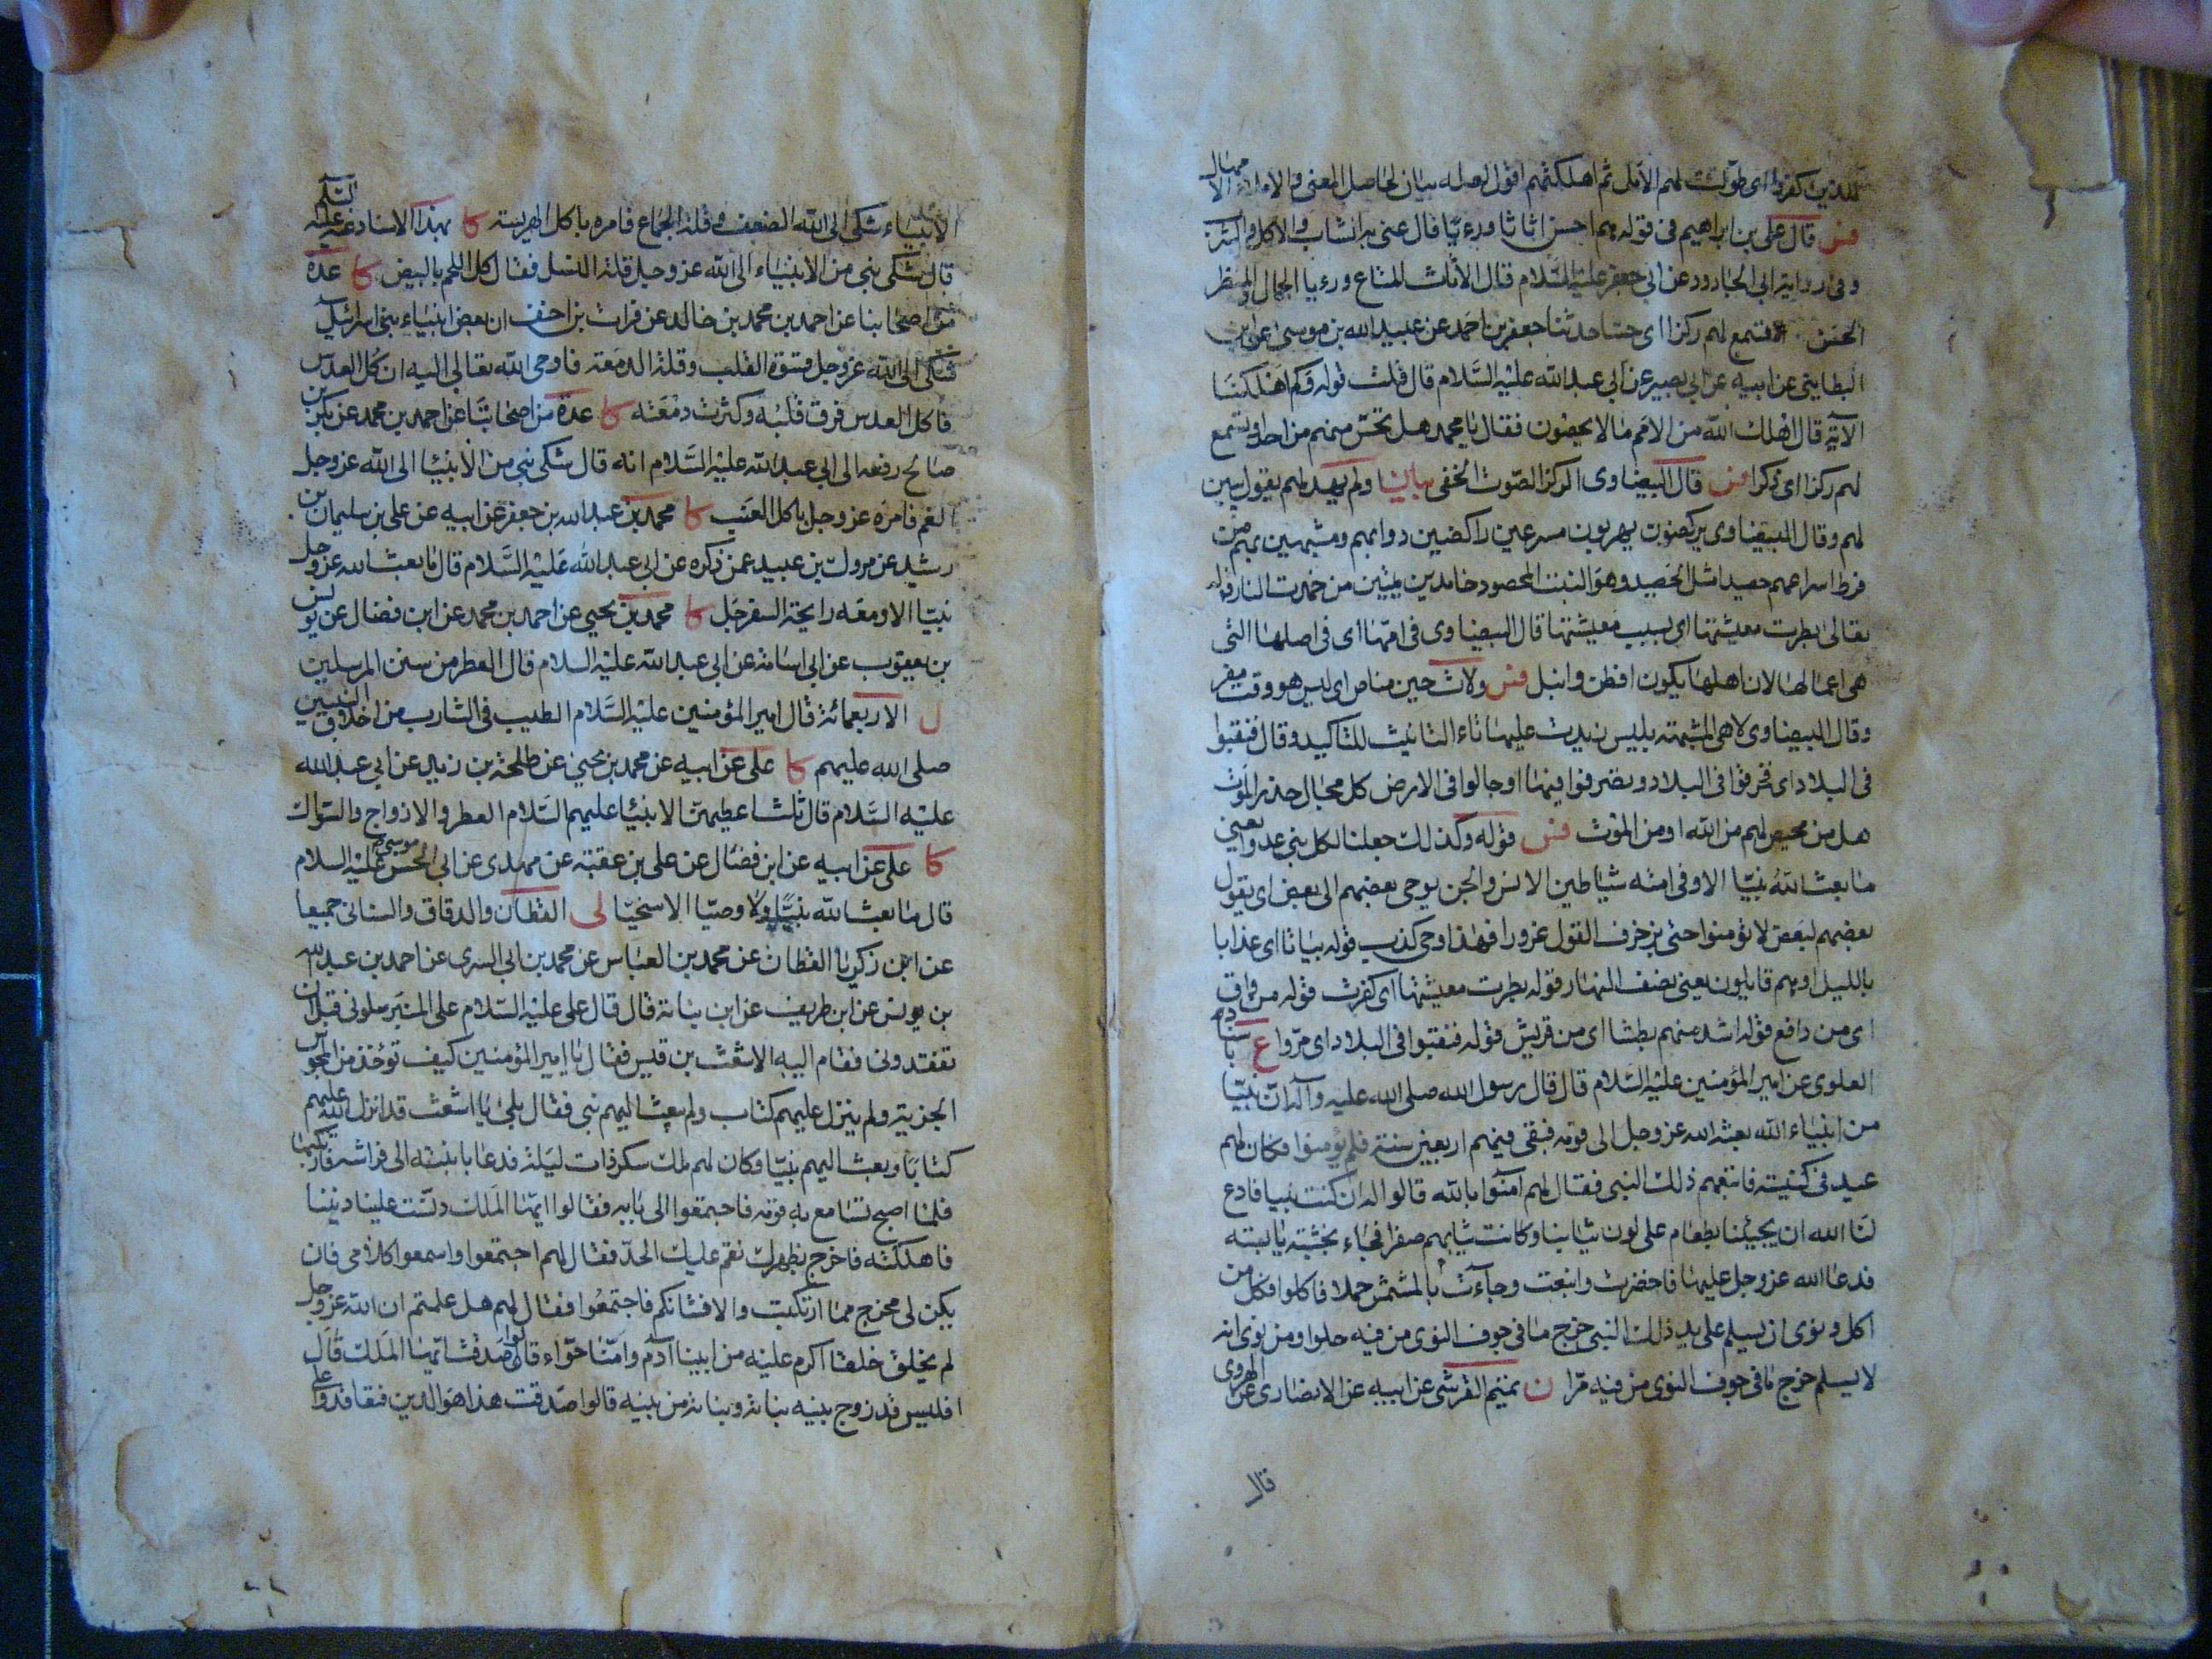 للذين كفروا اى طولت لهم الامل ثم اهلكتهم اقول لعله بيان لحاصل المعنى والاملاء الامهال
فس قال على بن ابراهيم فى قوله هم احسن اثاثا ورءيا قال عنى به الثياب والاكل والشرب
وفى رواية ابى الجارود عن ابى جعفر عليه السلام قال الاثاث المتاع ورءيا الجمال والمنظر
الحسن او تسمع لهم ركزا اى حسا حدثنا جعفر بن احمد عن عبيد الله بن موسى عن ابن
البطاينى عن ابيه عن ابى بصير عن ابى عبد الله عليه السلام قال قلت قوله وكم اهلكنا
الآية قال اهلك الله من الامم ما لا يحصون فقال يا محمد هل تحس منهم من احد او تسمع
لهم ركزا اى ذكرا فس قال البيضاوى الركز الصوت الخفى بيان اولم يهد لهم يقول يبين
لهم وقال البيضاوى يركضون يهربون مسرعين راكضين دوابهم ومشبهين بهم من
فرط اسراعهم حصيدا مثل الحصيد وهو النبت المحصود خامدين ميتين من خمدت النار قوله
تعالى بطرت معيشتها اى بسبب معيشتها قال البيضاوى فى امها اى فى اصلها التى
هى اعمالها لان اهلها يكون افطن وانبل فس ولات حين مناص اى ليس هو وقت مفر
وقال البيضاوى لا هى المشبهة بليس زيدت عليها تاء التانيث للتاكيد وقال فنقبوا
فى البلاد اى فخرقوا فى البلاد وتصرفوا فيها او جالوا فى الارض كل مجال حذر الموت
هل من محيص لهم من الله او من الموت فس قوله وكذلك جعلنا لكل نبى عدوا يعنى
ما بعث الله نبيا الا وفى امته شياطين الانس والجن يوحى بعضهم الى بعض اى يقول
بعضهم لبعض لا تؤمنوا حتى بزخرف القول غرورا فهذا وحى كذب قوله بياتا اى عذابا
بالليل او هم قايلون يعنى نصف النهار قوله بطرت معيشتها اى كفرت قوله من واق
اى من دافع قوله اشد منهم بطشا اى من قريش قوله فنقبوا فى البلاد اى مروا ع باسناد
العلوى عن امير المؤمنين عليه السلام قال قال رسول الله صلى الله عليه وآله ان نبيا
من انبياء الله بعثه الله عز وجل الى قومه فبقى فيهم اربعين سنة فلم يؤمنوا فكان لهم
عيد فى كنيسة فاتبعهم ذلك النبى فقال لهم آمنوا بالله قالوا له ان كنت نبيا فادع
لنا الله ان يجيئنا بطعام على لون ثيابنا وكانت ثيابهم صفرا فجاء بخشبة يابسة
فدعا الله عز وجل عليها فاخضرت واينعت وجاءت بالمشمش حملا فاكلوا فكل من
اكل ونوى ان يسلم على يد ذلك النبى خرج ما فى جوف النوى من فيه حلوا ومن نوى انه
لا يسلم خرج ما فى جوف النوى من فيه مرا ن تميم القرشى عن ابيه عن الانصارى عن الهروى
قال
الانبياء شكى الى الله الضعف وقلة الجماع فامره باكل الهريسة كا بهذا الاسناد عنه عليه السلم
قال شكى نبى من الانبياء الى الله عز وجل قلة النسل فقال كل اللحم بالبيض كا عدة
من اصحابنا عن احمد بن محمد بن خالد عن فرات بن احنف ان بعض انبياء بنى اسرائيل
شكى الى الله عز وجل قسوة القلب وقلة الدمعة فاوحى الله تعالى اليه ان كل العدس
فاكل العدس فرق قلبه وكثرت دمعته كا عدة من اصحابنا عن احمد بن محمد عن بكر بن
صالح رفعه الى ابى عبد الله عليه السلام انه قال شكى نبى من الانبيا الى الله عز وجل
الغم فامره عز وجل باكل العنب كا محمد بن عبد الله بن جعفر عن ابيه عن على بن سليمان بن
رشيد عن مروك بن عبيد عمن ذكره عن ابى عبد الله عليه السلام قال ما بعث الله عز وجل
نبيا الا ومعه رايحة السفرجل كا محمد بن يحيى عن احمد بن محمد عن ابن فضال عن يونس
بن يعقوب عن ابى اسامة عن ابى عبد الله عليه السلام قال العطر من سنن المرسلين
ل الاربعمائة قال امير المؤمنين عليه السلام الطيب فى الشارب من اخلاق النبيين
صلى الله عليهم كا على عن ابيه عن محمد بن يحيى عن طلحة بن زيد عن ابى عبد الله
عليه السلام قال ثلث اعطيهن الانبيا عليهم السلام العطر والازواج والسواك
كا على عن ابيه عن ابن فضال عن على بن عقبة عن مهدى عن ابى الحسن موسى عليه السلام
قال ما بعث الله نبيا ولا وصيا الا سخيا لى القطان والدقاق والسنانى جميعا
عن ابن زكريا القطان عن محمد بن العباس عن محمد بن ابى السرى عن احمد بن عبد الله
بن يونس عن ابن طريف عن ابن نباتة قال قال على عليه السلام على المنبر سلونى قبل ان
تفقدونى فقام اليه الاشعث بن قيس فقال يا امير المؤمنين كيف تؤخذ من المجوس
الجزية ولم ينزل عليهم كتاب ولم يبعث اليهم نبى فقال بلى يا اشعث قد انزل الله عليهم
كتابا وبعث اليهم نبيا وكان لهم ملك سكر ذات ليلة فدعا بابنته الى فراشه فارتكبها
فلما اصبح تسامع به قومه فاجتمعوا الى بابه فقالوا ايها الملك دنست علينا ديننا
فاهلكته فاخرج نطهرك نقم عليك الحد فقال لهم اجتمعوا واسمعوا كلامى فان
يكن لى مخرج مما ارتكبت والا فشانكم فاجتمعوا فقال لهم هل علمتم ان الله عز وجل
لم يخلق خلقا اكرم عليه من ابينا آدم وامنا حواء قالوا صدقت ايها الملك قال
افليس قد زوج بنيه بناته وبناته من بنيه قالوا صدقت هذا هو الدين فتعاقدوا على